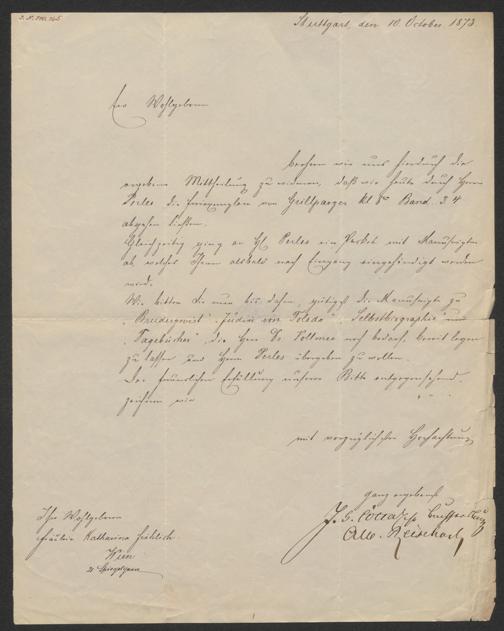 Stuttgart, den 10. October 1873
Ew Wohlgeboren
beehren wir uns hierdurch die
ergebene Mittheilung zu machen, daß wir heute durch Herrn
Perles die Freiexemplare von Grillparzer Band 3. 4
abgehen ließen.
Gleichzeitig ging an H. Perles ein Packet mit Manuscripten
ab welches Ihnen alsbald nach Eingang eingehändigt werden
wird.
Wir bitten Sie nun bis dahin, gütigst die Manuscripte zu
„Bruderzwist", „Jüdin von Toledo", „Selbstbiographie" und
„Tagebücher" die Herr Dr. Vollmer noch bedarf, bereit legen
zu lassen und Herrn Perles übergeben zu wollen.
Der freundlichen Erfüllung unserer Bitte entgegensehend,
zeichnen wir
mit vorzüglicher Hochachtung
ganz ergebenst
J. G. Cotta'sche
Alb.
Ihro Wohlgeboren
Fräulein Katharina Fröhlich
Wien
21 Spiegelgasse